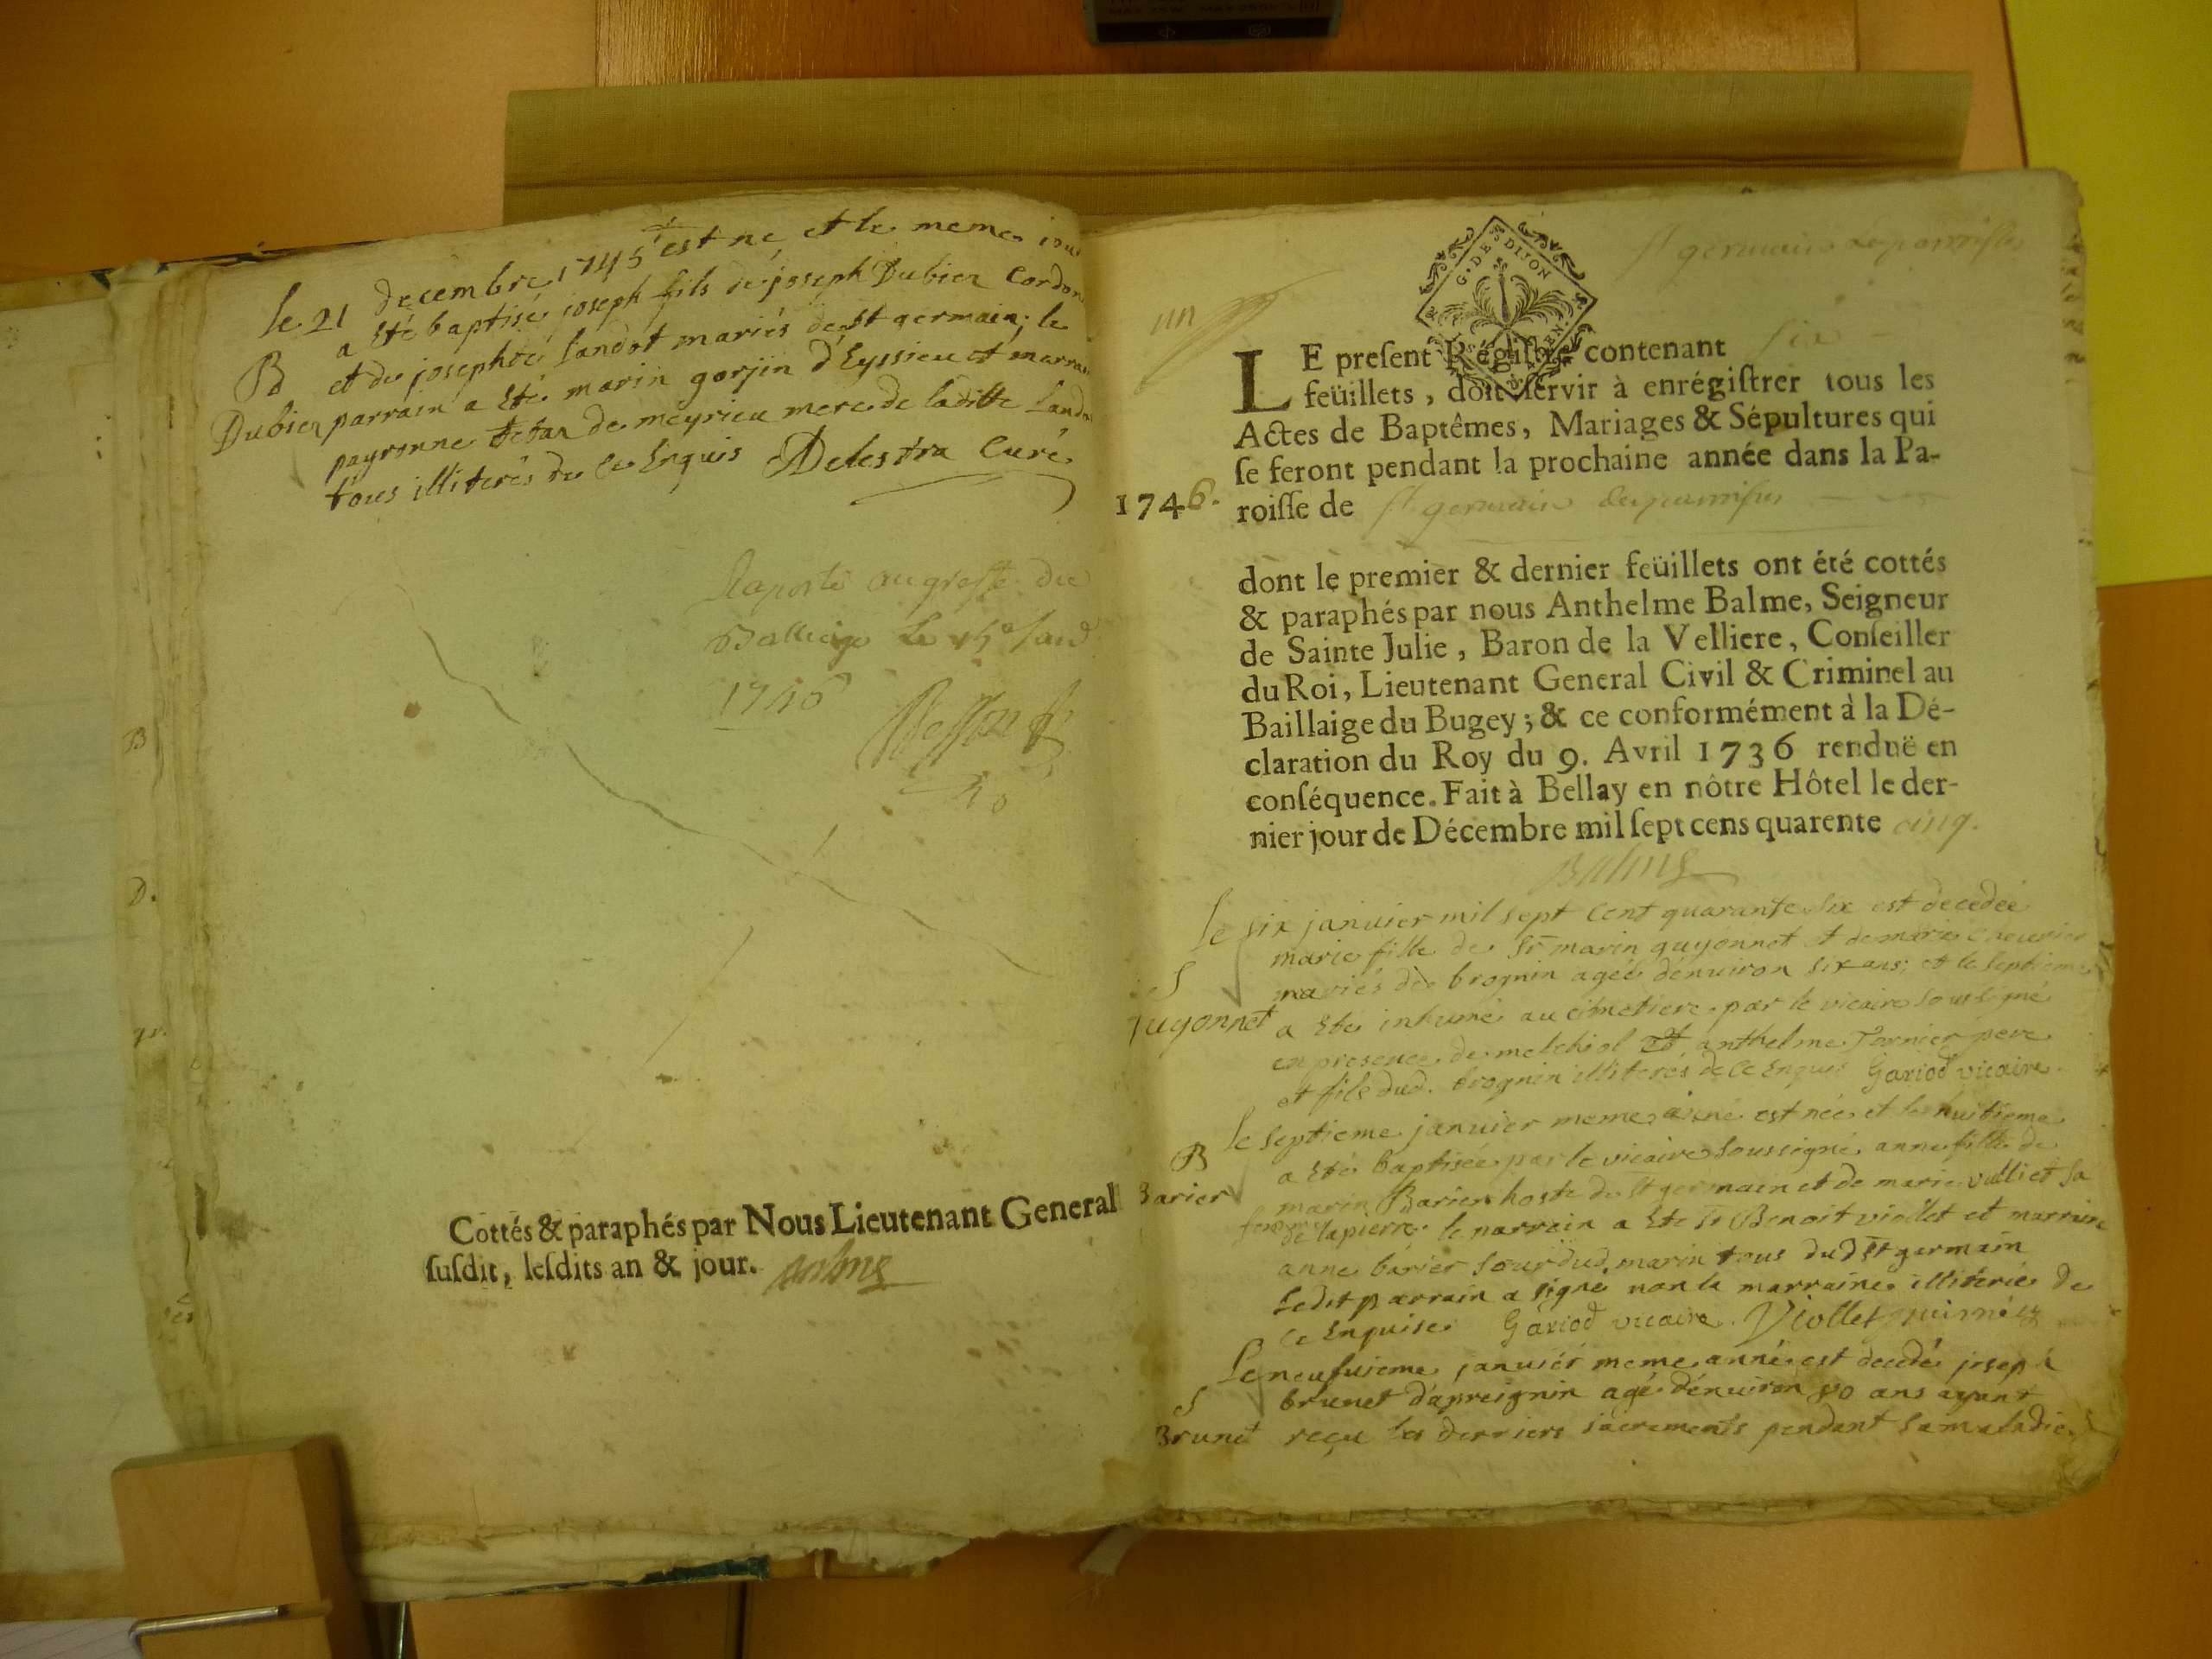 le 21 decembre 1745 est né et le meme jour
a Eté baptisé joseph fils de joseph Dubier Cordon
B
et de josephté landot mariés de st germain; le
Dubier parrain a Eté marin gorjin d'Eyssieu et marrai
payronne de meyrieu mere de laditte Lando
tous illiterés de ce Enquis Delestra Curé
Raporté au greffe du
Balliage le
1746
Cottés & paraphés par Nous Lieutenant General
susdit, lesdits an & jour. Balme
B
D.
G. DE DIJON
st germain
un
LE present Régistre contenant six
feüillets, doit servir à enrégistrer tous les
Actes de Baptêmes, Mariages & Sépultures qui
se feront pendant la prochaine année dans la Pa-
1746. roisse de st germain
dont le premier & dernier feüillets ont été cottés
& paraphés par nous Anthelme Balme, Seigneur
de Sainte Julie, Baron de la Velliere, Conseiller
du Roi, Lieutenant General Civil & Criminel au
Baillaige du Bugey; & ce conformément à la Dé-
claration du Roy du 9. Avril 1736 renduë en
conséquence. Fait à Bellay en nôtre Hôtel le der-
nier jour de Décembre mil sept cens quarente cinq.
Balme
le six janvier mil sept Cent quarante six est decedée
marie fille de Sr marin guyonnet et de marie
S
mariés de brognin agée d'enuiron six ans; et le septieme
guyonnet a Eté inhumé au cimetiere par le vicaire soussigné
en presence de melchiol et anthelme Tornier pere
et fils dud. brognin illiterés de ce Enquis Gariod vicaire.
le septieme januier meme année est née et le huitieme
B
a Eté baptisée par le vicaire soussigné anne fille de
Barier marin Barier hoste de st germain et de marie vulliet sa
femme de lapierre le parrain a Eté Sr Benoit viollet et marraine
anne barier soeur dud. marin tous dud st germain
ledit parrain a signé non la marraine illiterée de
ce Enquise Gariod vicaire. Viollet puisné
Le neufuieme januier meme année est decedé joseph
S
brunet d'apreignin agé d'enuiron 80 ans ayant
Brunet reçu les derniers sacrements pendant sa maladie